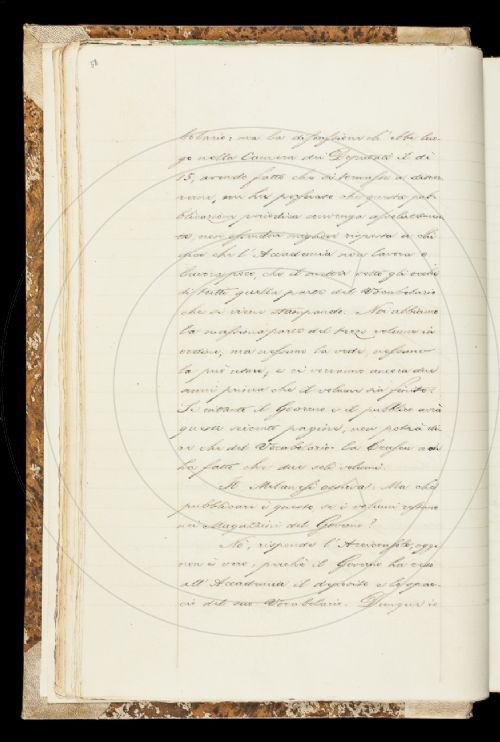 58
fetario: ma la discussione ch' ebbe luo-
go nella Camera dei Deputati il dì
15, avendo fatto che si tornasse a discor-
rerne, mi ha persuaso che questa pub-
blicazione periodica convenga
non essendovi miglior risposta a chi
dice che l'Accademia non lavora o
lavora poco, che il mettere sotto gli occhi
di tutti quella parte del Vocabolario
che si viene stampando. Noi abbiamo
la massima parte del terzo volume in
ordine, ma nessuno la vede, nessuno
la può usare, e ci verranno ancora due
anni prima che il volume sia finito.
Se intanto il Governo e il pubblico avrà
queste seicento pagine, non potrà di-
re che del Vocabolario la Crusca non
ha fatto che due soli volumi.
Il Milanesi osserva: Ma che
pubblicare è questo, se i volumi restano
nei Magazzini del Governo?
No, risponde l'Arciconsolo; oggi
non è vero, perchè il Governo ha reso
all'Accademia il deposito e lo spac-
cio del suo Vocabolario. Dunque io